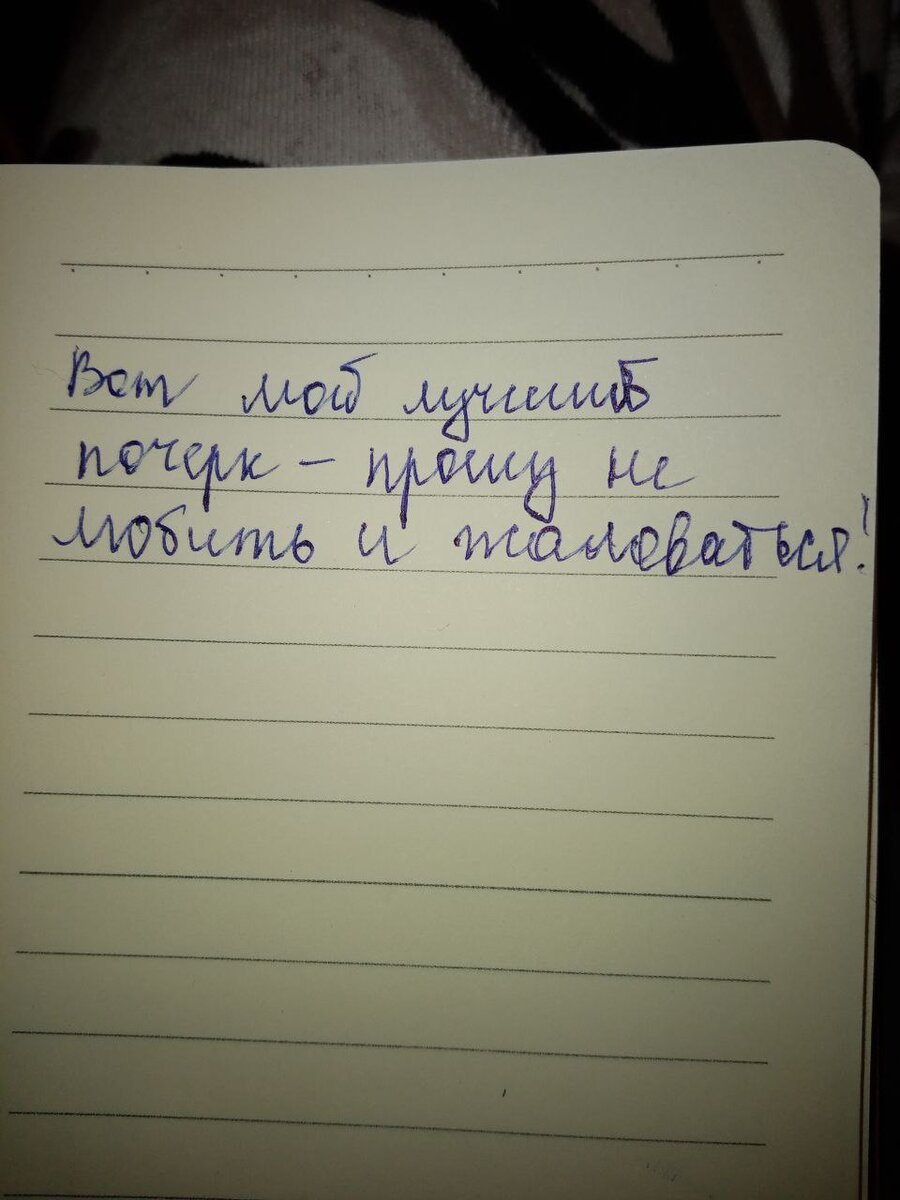 Вот мой лучший
почерк - прошу не
любить и жаловаться!